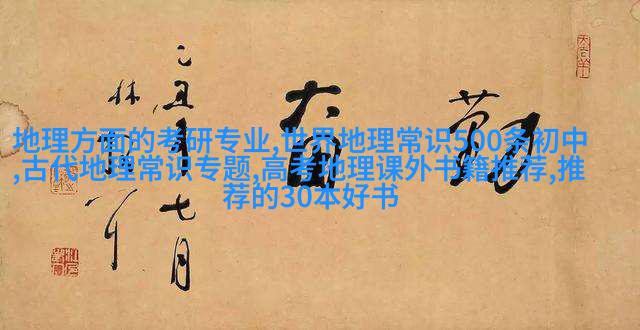 地理方面的考研专业,世界地理常识500条初中
,古代地理常识专题,高考地理课外书籍推荐,推
荐的30本好书
勤奋
乙丑年七月
林